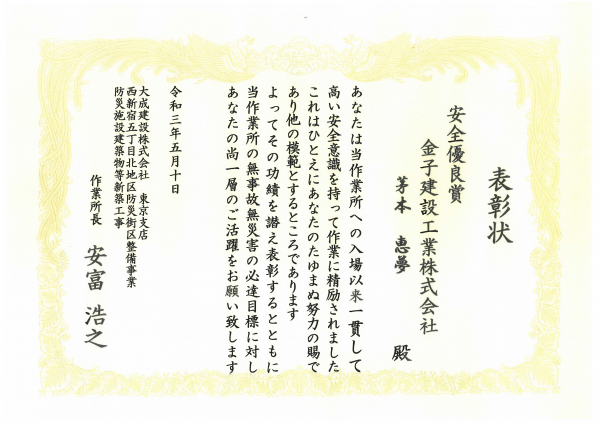 表彰状
安全優良賞
金子建設工業株式会社
茅本 恵夢 殿
あなたは当作業所への入場以来一貫して
高い安全意識を持って作業に精励されました
これはひとえにあなたのたゆまぬ努力の賜で
あり他の模範とするところであります
よってその功績を讃え表彰するとともに
当作業所の無事故無災害の必達目標に対し
あなたの尚一層のご活躍をお願い致します
令和三年五月十日
大成建設株式会社 東京支店
西新宿五丁目北地区防災街区整備事業
防災施設建築物等新築工事
作業所長 安富 浩之